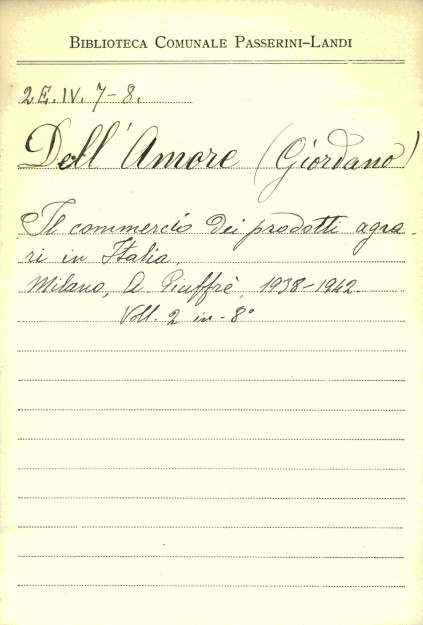 BIBLIOTECA COMUNALE PASSERINI-LANDI
2E.IV. 7-8.
Dell'Amore (Giordano)
Il commercio dei prodotti agra-
ri in Italia.
Milano, A. Giuffrè, 1938-1942.
Voll. 2 in-8°